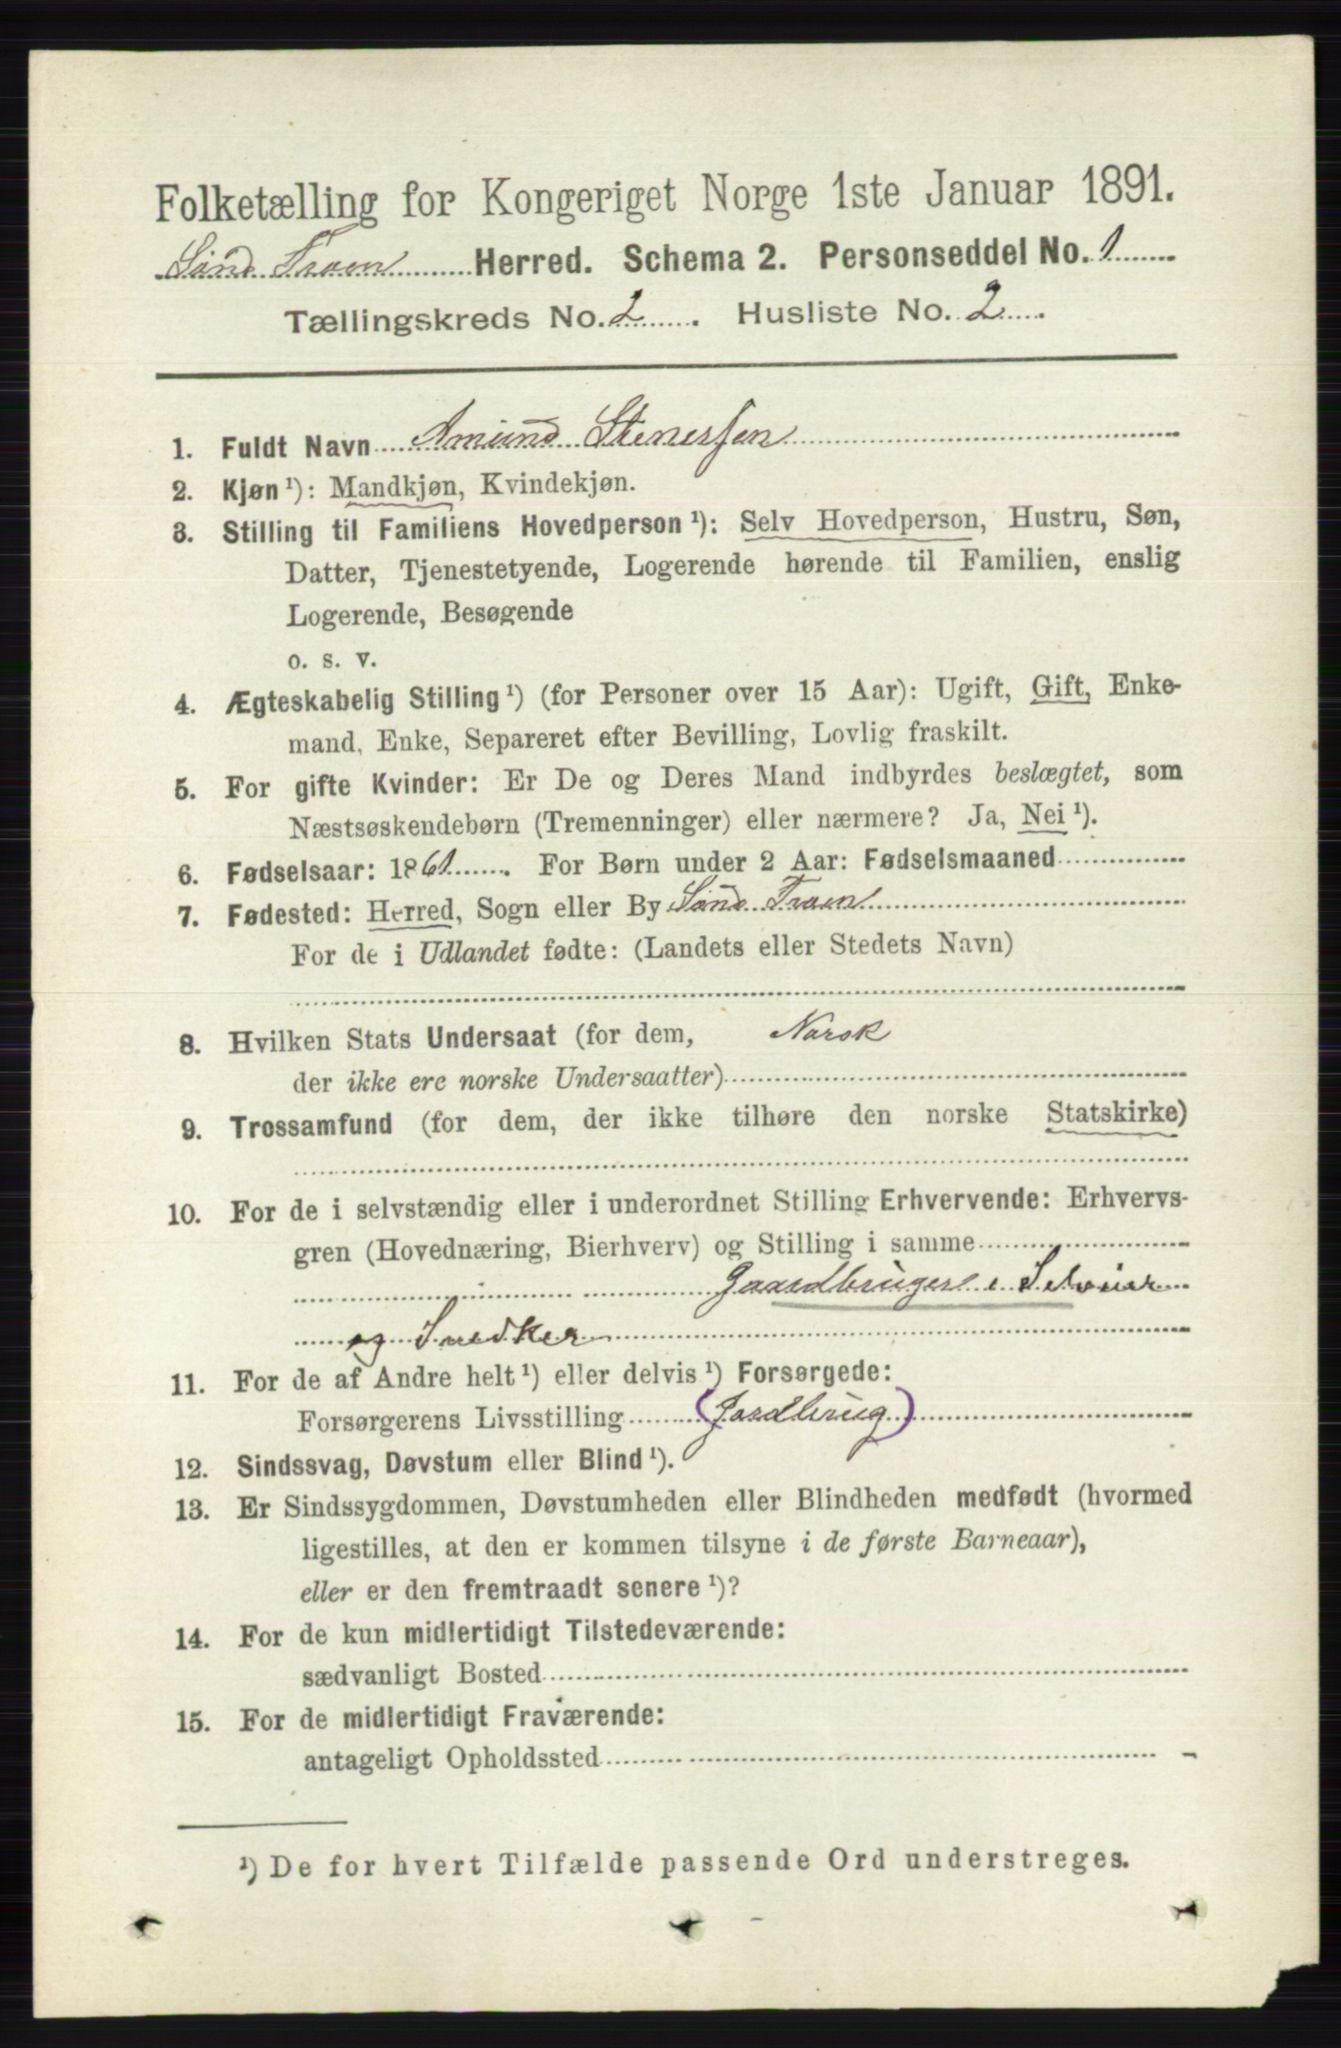 Folketælling for Kongeriget Norge 1ste Januar 1891.
Sønd. Fron Herred. Schema 2. Personseddel No. 1
Tællingskreds No. 2. Husliste No. 2
1. Fuldt Navn Amund Stenersen
2. Kjøn ¹): Mandkjøn, Kvindekjøn.
3. Stilling til Familiens Hovedperson ¹): Selv Hovedperson, Hustru, Søn,
Datter, Tjenestetyende, Logerende hørende til Familien, enslig
Logerende, Besøgende
o. s. v.
4. Ægteskabelig Stilling ¹) (for Personer over 15 Aar): Ugift, Gift, Enke-
mand, Enke, Separeret efter Bevilling, Lovlig fraskilt.
5. For gifte Kvinder: Er De og Deres Mand indbyrdes beslægtet, som
Næstsøskendebørn (Tremenninger) eller nærmere? Ja, Nei ¹).
6. Fødselsaar: 1861. For Børn under 2 Aar: Fødselsmaaned
7. Fødested: Herred, Sogn eller By Sønd. Fron
For de i Udlandet fødte: (Landets eller Stedets Navn)
8. Hvilken Stats Undersaat (for dem, Norsk
der ikke ere norske Undersaatter)
9. Trossamfund (for dem, der ikke tilhøre den norske Statskirke)
10. For de i selvstændig eller i underordnet Stilling Erhvervende: Erhvervs-
gren (Hovednæring, Bierhverv) og Stilling i samme
Gaardbruger Selveier
og Snedker
11. For de af Andre helt ¹) eller delvis ¹) Forsørgede:
Forsørgerens Livsstilling (Jordbrug)
12. Sindssvag, Døvstum eller Blind ¹).
13. Er Sindssygdommen, Døvstumheden eller Blindheden medfødt (hvormed
ligestilles, at den er kommen tilsyne i de første Barneaar),
eller er den fremtraadt senere ¹)?
14. For de kun midlertidigt Tilstedeværende:
sædvanligt Bosted
15. For de midlertidigt Fraværende:
antageligt Opholdssted
¹) De for hvert Tilfælde passende Ord understreges.